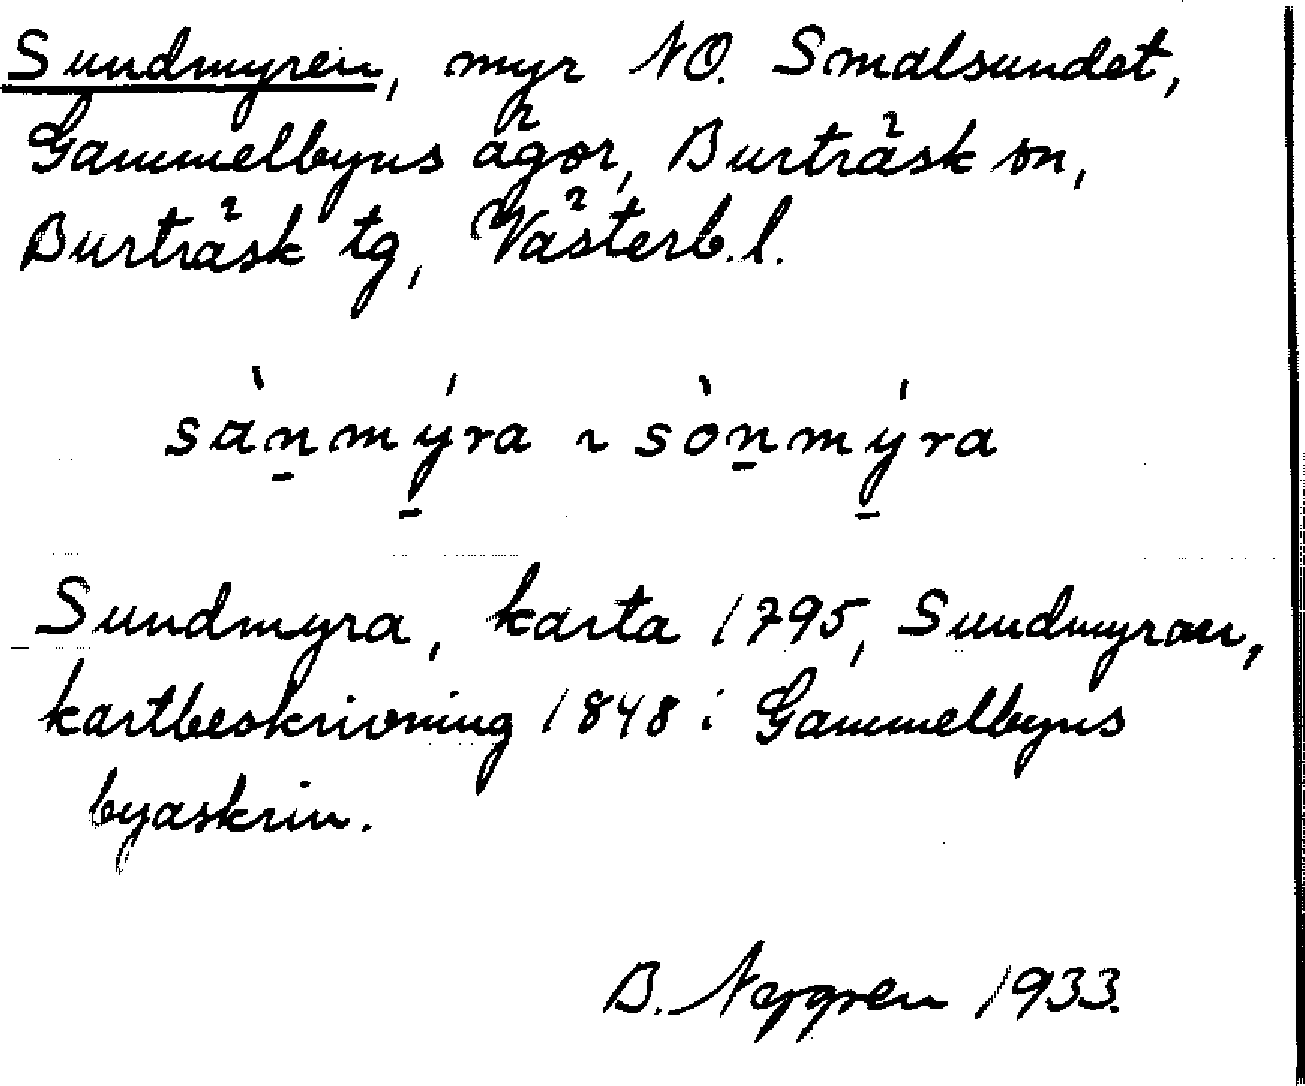 Sundmyren, myr NO. Smalsundet,
Gammelbyns ägor, Burträsk sn,
Burträsk tg, Västerb. l.
sàn̠mý̠ra ~ sòn̠mý̠ra
Sundmyra, karta 1795, Sundmyran,
kartbeskrivning 1848 i Gammelbyns
byaskrin.
B. Nygren 1933.